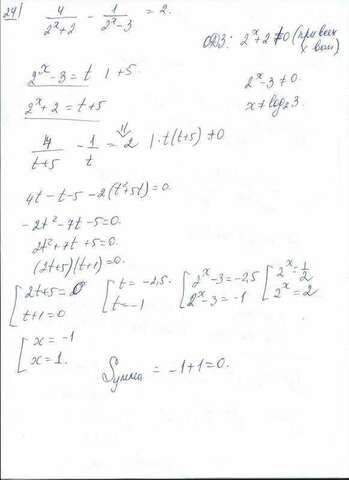 24) 4/(2^x+2) - 1/(2^x-3) = 2.
ОДЗ: 2^x+2≠0 (при всех x вып)
2^x-3≠0.
x≠log₂3
2^x-3=t | +5
2^x+2=t+5
4/(t+5) - 1/t = 2 | ·t(t+5)≠0
4t-t-5-2(t²+5t)=0.
-2t²-7t-5=0.
2t²+7t+5=0.
(2t+5)(t+1)=0.
[2t+5=0 [t=-2,5. [2^x-3=-2,5 [2^x=1/2
t+1=0 t=-1 2^x-3=-1 2^x=2
[x=-1
x=1.
Сумма = -1+1=0.